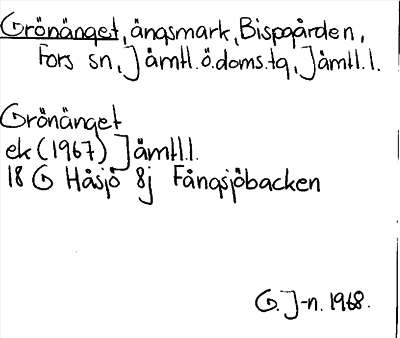 Grönänget, ängsmark, Bispgården,
Fors sn, Jämtl. ö. doms. tg, Jämtl. l.
Grönänget
ek (1967) Jämtl.l.
18 G Håsjö 8j Fångsjöbacken
G. J-n. 1968.